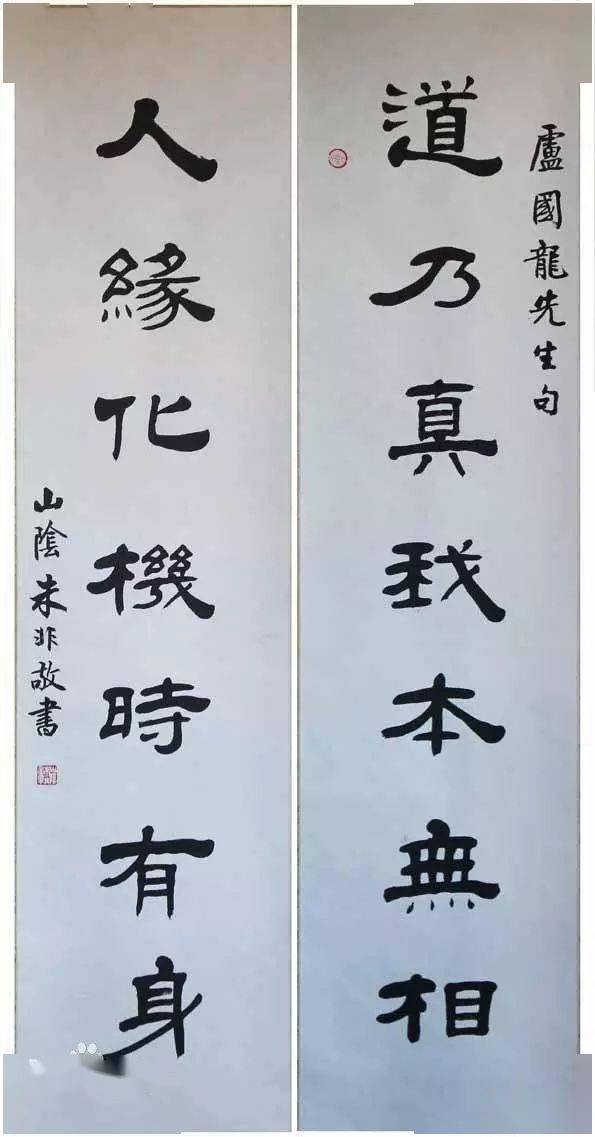 盧國龍先生句
道乃真我本無相
人緣化機時有身
山陰未非敬書